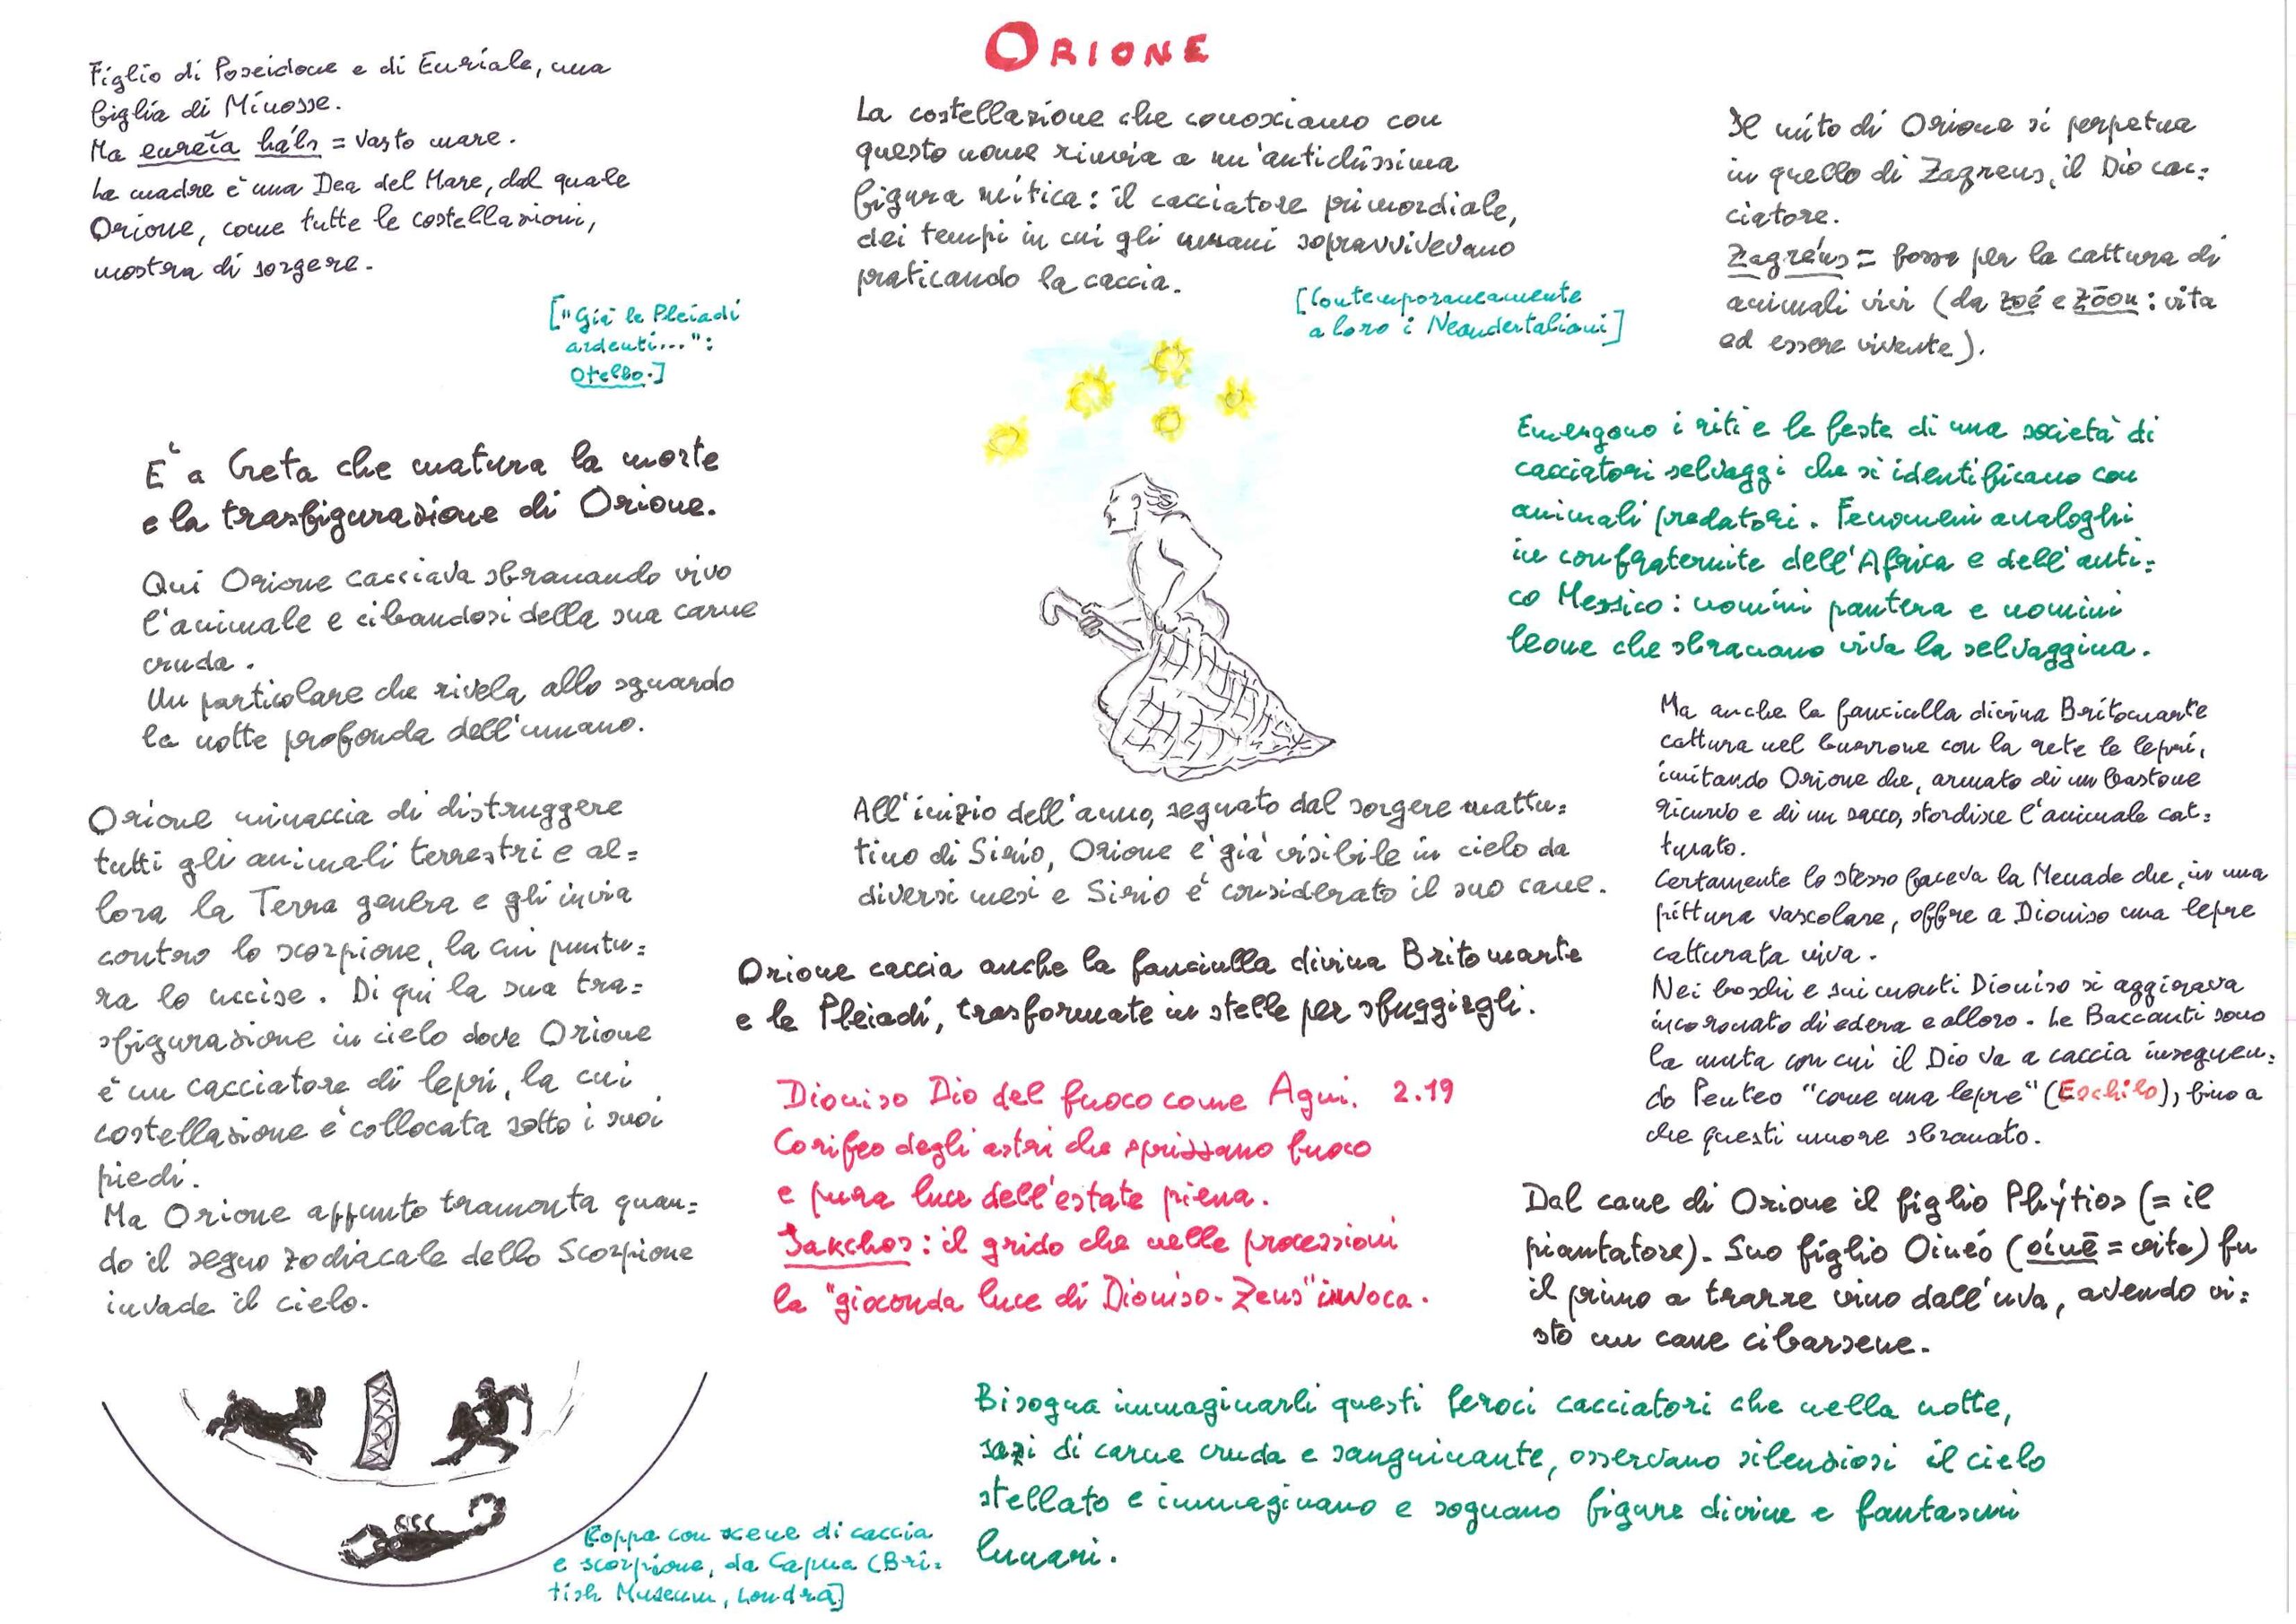 ORIONE
Figlio di Poseidone e di Euriale, una
figlia di Minosse.
Ma eureîa háls = vasto mare.
La madre è una Dea del Mare, dal quale
Orione, come tutte le costellazioni,
mostra di sorgere.
["Già le Pleiadi
ardenti...":
Otello.]
È a Creta che matura la morte
e la trasfigurazione di Orione.
Qui Orione cacciava sbranando vivo
l'animale e cibandosi della sua carne
cruda.
Un particolare che rivela allo sguardo
la notte profonda dell'umano.
Orione minaccia di distruggere
tutti gli animali terrestri e al=
lora la Terra genera e gli invia
contro lo scorpione, la cui puntu=
ra lo uccise. Di qui la sua tra=
sfigurazione in cielo dove Orione
è un cacciatore di lepri, la cui
costellazione è collocata sotto i suoi
piedi.
Ma Orione appunto tramonta quan=
do il segno zodiacale dello Scorpione
invade il cielo.
[Coppa con scene di caccia
e scorpione, da Capua (Bri=
tish Museum, Londra]
La costellazione che conosciamo con
questo nome rinvia a un'antichissima
figura mitica: il cacciatore primordiale,
dei tempi in cui gli umani sopravvivevano
praticando la caccia.
[Contemporaneamente
a loro i Neandertaliani]
All'inizio dell'anno, segnato dal sorgere mattu=
tino di Sirio, Orione è già visibile in cielo da
diversi mesi e Sirio è considerato il suo cane.
Orione caccia anche la fanciulla divina Britomarte
e le Pleiadi, trasformate in stelle per sfuggirgli.
Dioniso Dio del fuoco come Agni. 2.19
Corifeo degli astri che sprizzano fuoco
e pura luce dell'estate piena.
Iakchos: il grido che nelle processioni
la "gioconda luce di Dioniso-Zeus" invoca.
Il mito di Orione si perpetua
in quello di Zagreus, il Dio cac=
ciatore.
Zagréus = fossa per la cattura di
animali vivi (da zoé e zôon: vita
ed essere vivente).
Emergono i riti e le feste di una società di
cacciatori selvaggi che si identificano con
animali predatori. Fenomeni analoghi
in confraternite dell'Africa e dell'anti=
co Messico: uomini pantera e uomini
leone che sbranano viva la selvaggina.
Ma anche la fanciulla divina Britomarte
cattura nel burrone con la rete le lepri,
imitando Orione che, armato di un bastone
ricurvo e di un sacco, stordisce l'animale cat=
turato.
Certamente lo stesso faceva la Menade che, in una
pittura vascolare, offre a Dioniso una lepre
catturata viva.
Nei boschi e sui monti Dioniso si aggirava
incoronato di edera e alloro. Le Baccanti sono
la muta con cui il Dio va a caccia inseguen=
do Penteo "come una lepre" (Eschilo), fino a
che questi muore sbranato.
Dal cane di Orione il figlio Phýtios (= il
piantatore). Suo figlio Oinéo (oínē = vite) fu
il primo a trarre vino dall'uva, avendo vi=
sto un cane cibarsene.
Bisogna immaginarli questi feroci cacciatori che nella notte,
sazi di carne cruda e sanguinante, osservano silenziosi il cielo
stellato e immaginano e sognano figure divine e fantasmi
lunari.